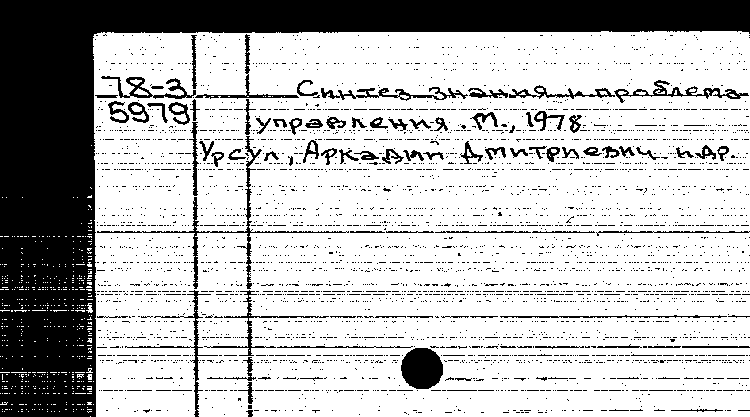 78-3 Синтез знания и проблема
5979 управления. М., 1978
Урсул, Аркадий Дмитриевич и др.